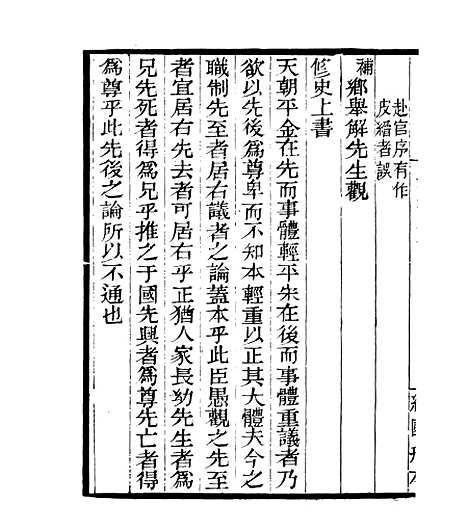 赴官序有作
皮縉者誤
補鄉舉解先生觀
修史上書
天朝平金在先而事體輕平朱在後而事體重議者乃
欲以先後為尊卑而不知本輕重以正其大體夫今之
職制先至者居右議者之論蓋本乎此臣愚觀之先至
者宜居右先去者可居右乎正猶人家長幼先生者為
兄先死者得為兄乎推之于國先興者為尊先亡者得
為尊乎此先後之論所以不通也